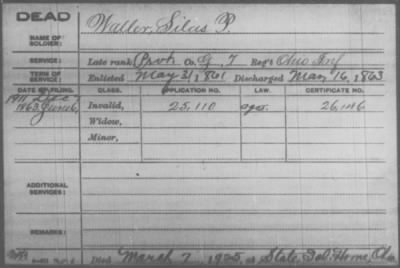 DEAD
NAME OF SOLDIER:
Waller, Silas P.
SERVICE:
Late rank Prvt Co. G, 7 Reg't Ohio Inf
TERM OF SERVICE:
Enlisted May 31, 1861 Discharged Mar 16, 1863
DATE OF FILING. CLASS. APPLICATION NO. LAW. CERTIFICATE NO.
1863, June 6, Invalid, 25,110 26,146
Widow,
Minor,
ADDITIONAL SERVICES:
REMARKS:
Died March 7, 1925, at State, Sol. Home, Ohio